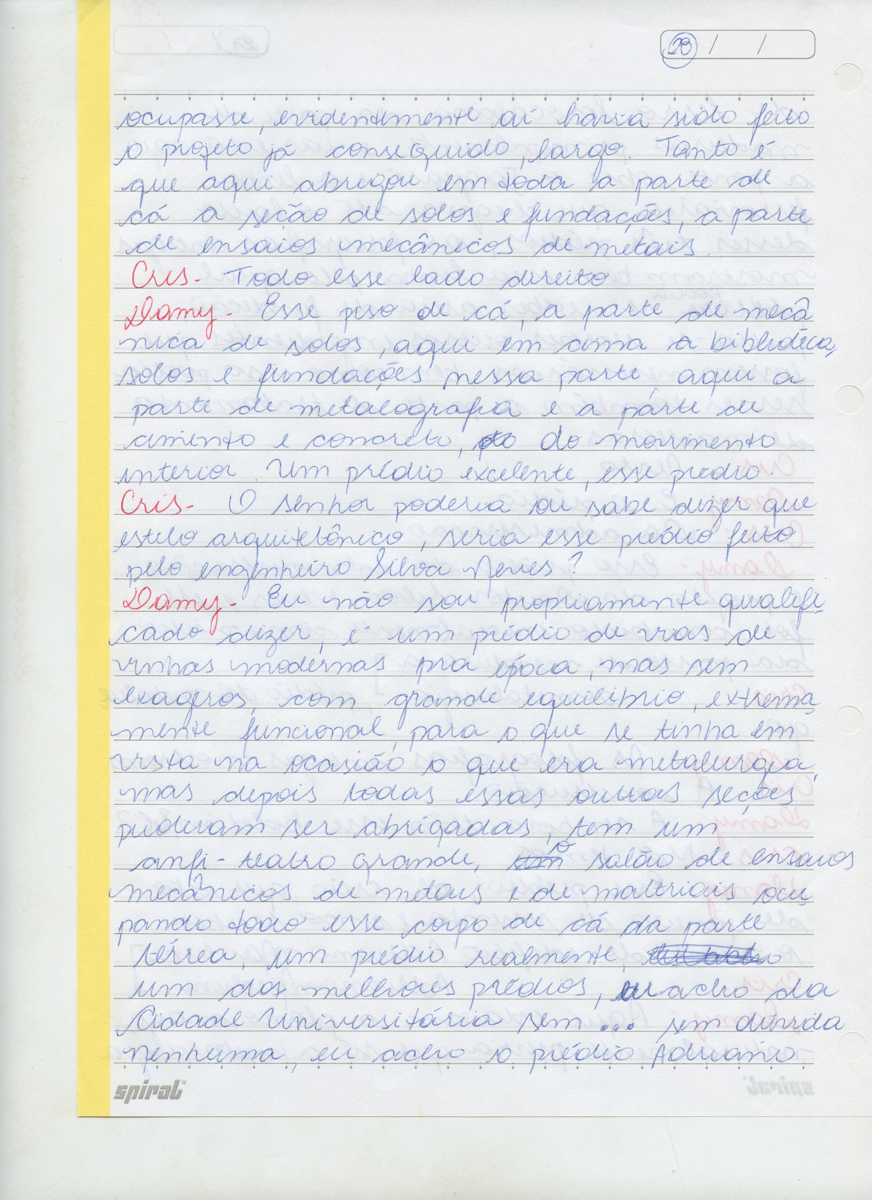 23 / /
ocupasse, evidentemente aí havia sido feito
o projeto já conseguido, largo. Tanto é
que aqui abrigou em toda a parte de
cá a seção de solos e fundações, a parte
de ensaios mecânicos de metais.
Cris- Todo esse lado direito
Damy- Esse piso de cá, a parte de mecâ
nica de solos, aqui em cima a biblioteca,
solos e fundações nessa parte, aqui a
parte de metalografia e a parte de
cimento e concreto, do movimento
interior. Um prédio excelente, esse predio.
Cris- O senhor poderia ou sabe dizer que
estilo arquitetônico, seria esse prédio feito
pelo engenheiro Silva Neves?
Damy- Eu não sou propriamente qualifi
cado dizer, é um prédio de vias de
vinhas modernas pra época, mas sem
exageros, com grande equilibrio, extrema
mente funcional, para o que se tinha em
vista na ocasião o que era metalurgia,
mas depois todas essas outras seções
puderam ser abrigadas, tem um
anfi-teatro grande, o salão de ensaios
mecânicos de metais e de materiais ocu
pando todo esse corpo de cá da parte
térrea, um prédio realmente,
um dos melhores prédios, eu acho da
Cidade Universitária sem... sem dúvida
nenhuma, eu acho o prédio Adriano
spiral